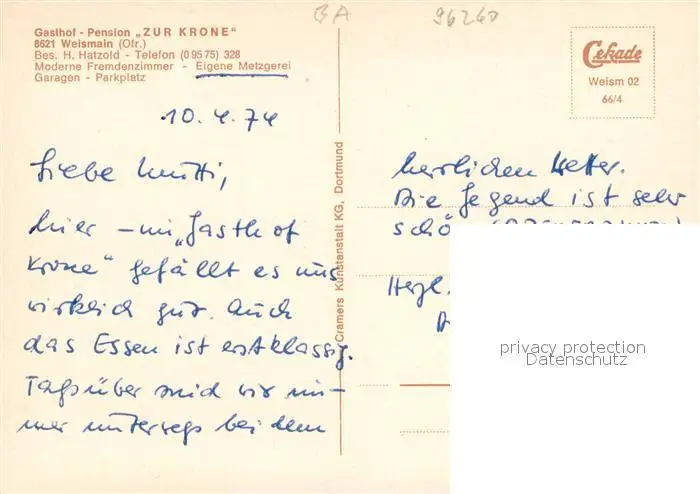 BA 96260
Gasthof - Pension „ZUR KRONE"
8621 Weismain (Ofr.)
Bes. H. Hatzold - Telefon (0 95 75) 328
Moderne Fremdenzimmer - Eigene Metzgerei
Garagen - Parkplatz
Cekade
Weism 02
66/4
10.4.74
Liebe Mutti,
hier – im „Gasthof
Krone" gefällt es uns
wirklich gut. Auch
das Essen ist erstklassig.
Tagsüber sind wir im-
mer unterwegs bei dem
Cramers Kunstanstalt KG, Dortmund
herrlichen Wetter.
Die Gegend ist sehr
schö
Herzl.
privacy protection
Datenschutz